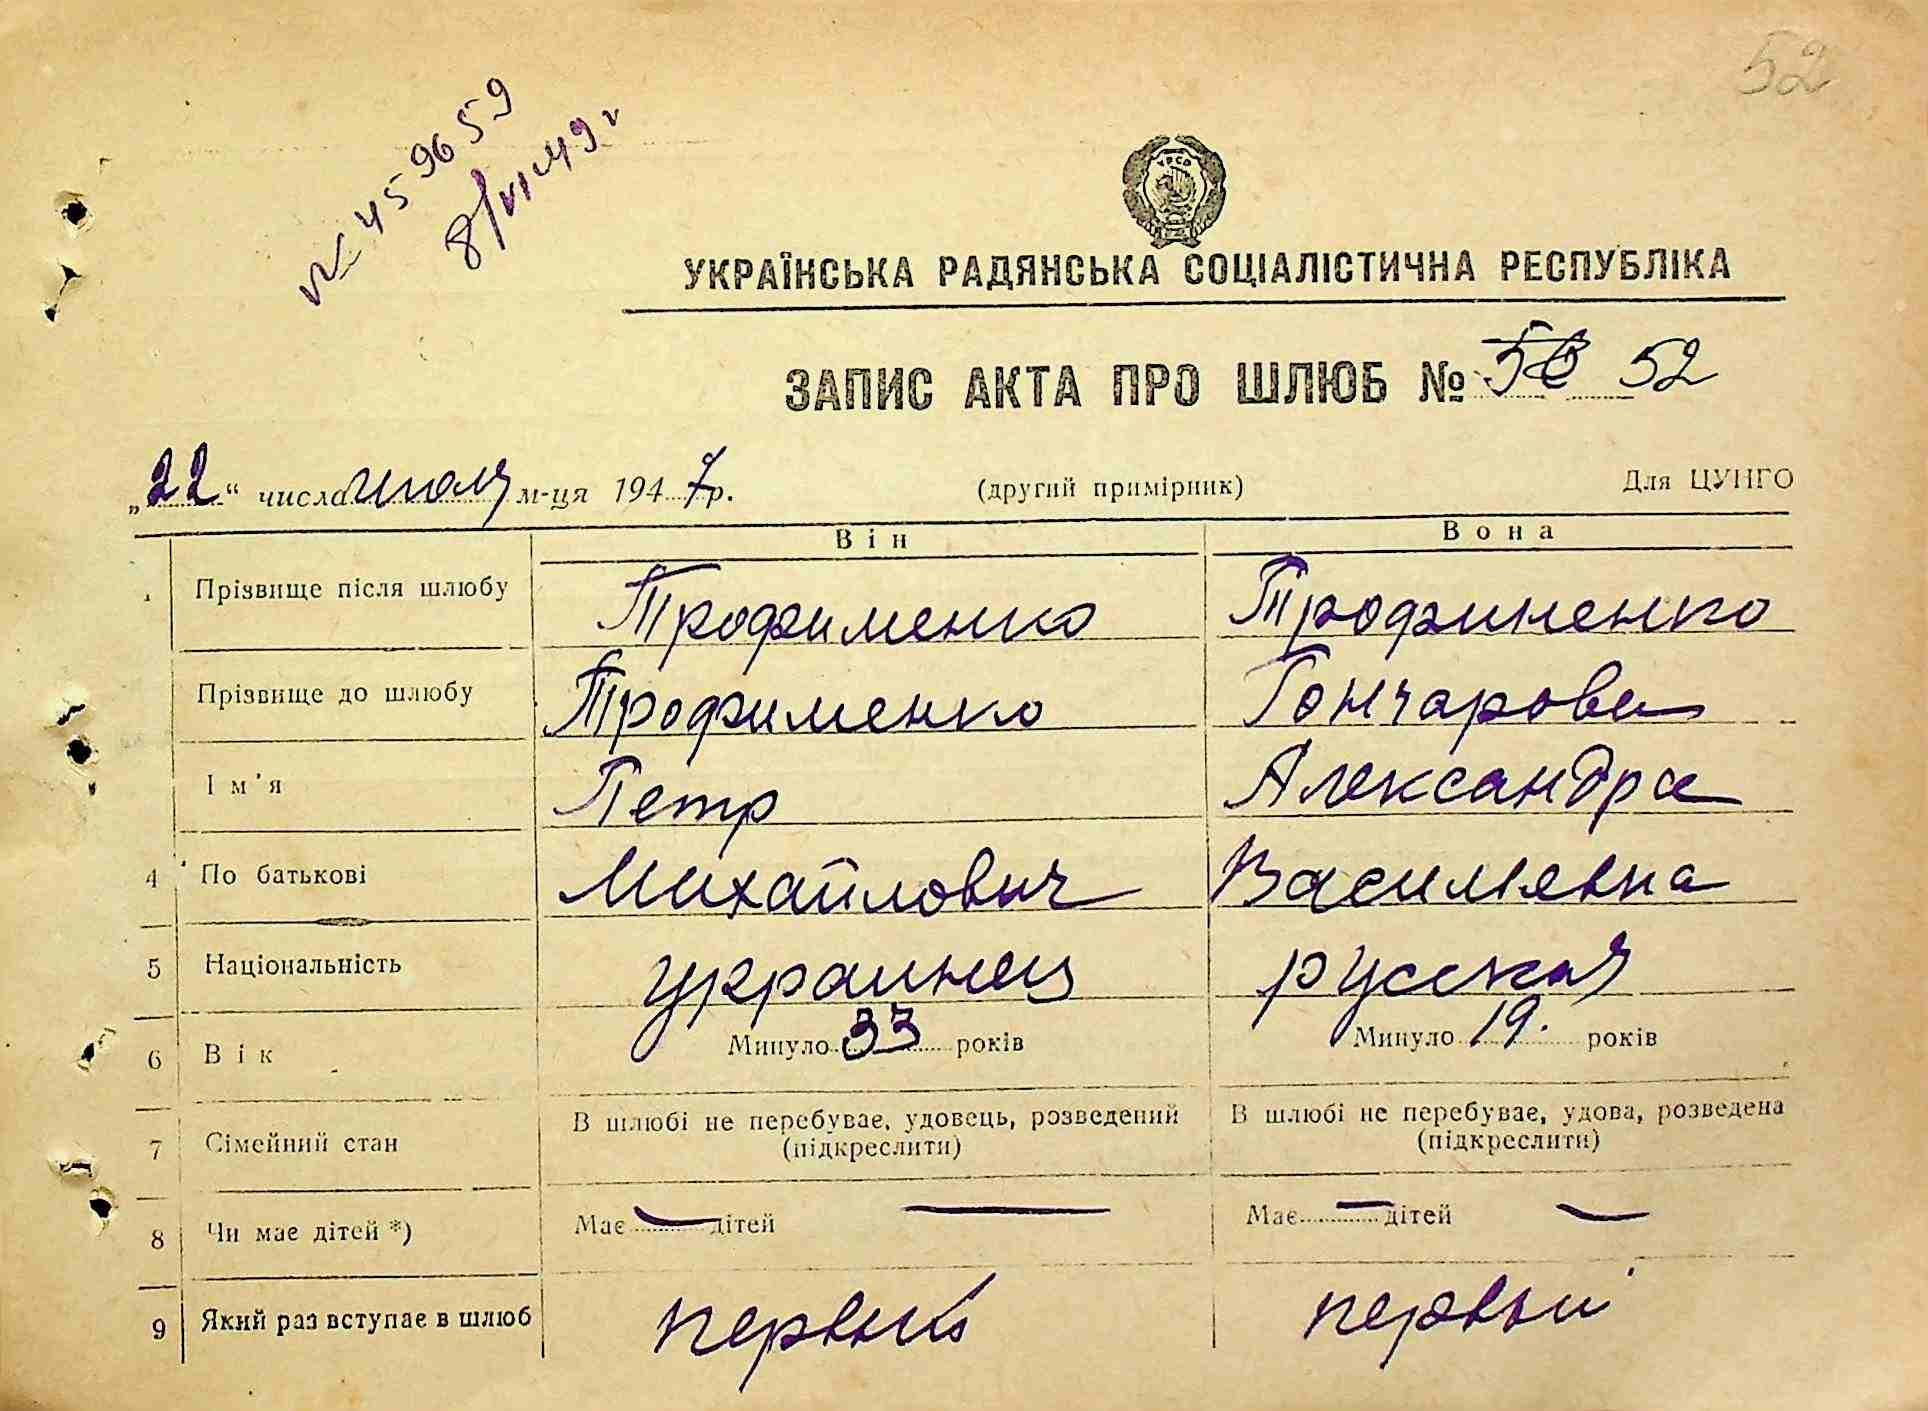 52
№ 459659
8/VI-49 г
УРСР
УКРАЇНСЬКА РАДЯНСЬКА СОЦІАЛІСТИЧНА РЕСПУБЛІКА
ЗАПИС АКТА ПРО ШЛЮБ № 52
„22“ числа июля м-ця 1947 р. (другий примірник) Для ЦУНГО
Він Вона
Прізвище після шлюбу Трофименко Трофименко
Прізвище до шлюбу Трофименко Гончарова
Ім'я Петр Александра
4 По батькові Михайлович Васильевна
5 Національність украинец русская
6 Вік Минуло 33 років Минуло 19. років
7 Сімейний стан В шлюбі не перебуває, удовець, розведений (підкреслити) В шлюбі не перебуває, удова, розведена (підкреслити)
8 Чи має дітей *) Має — дітей — Має — дітей —
9 Який раз вступає в шлюб первый первый